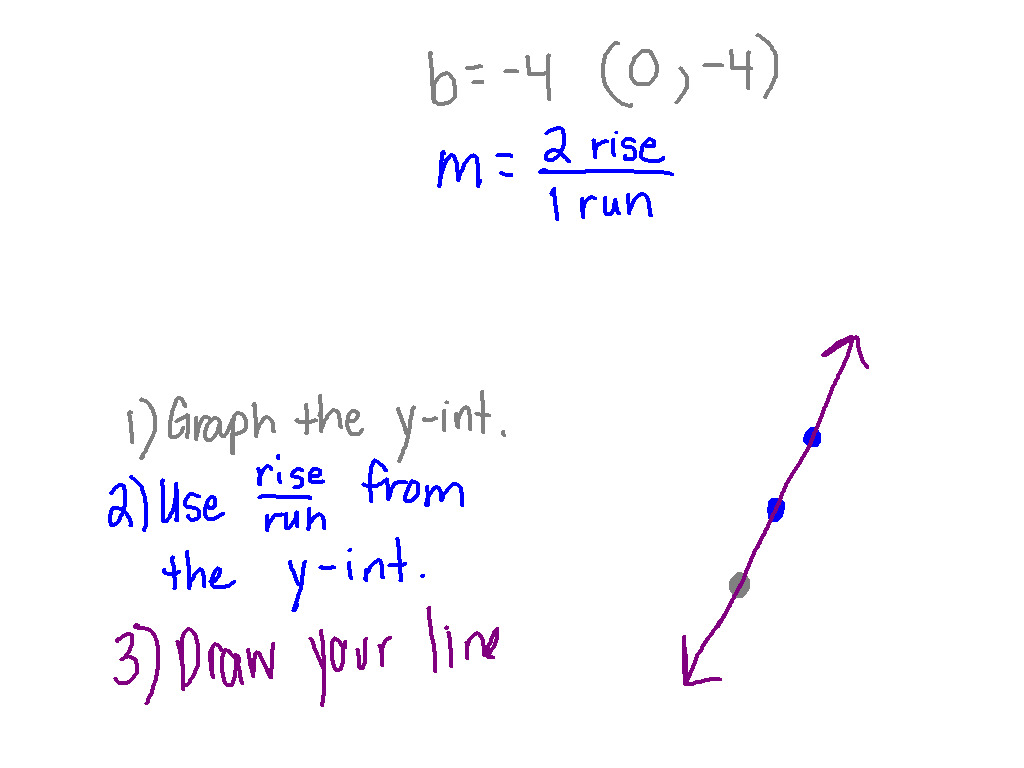 b = -4 (0, -4)
m = 2 rise
1 run
1) Graph the y-int.
2) Use rise/run from
the y-int.
3) Draw your line